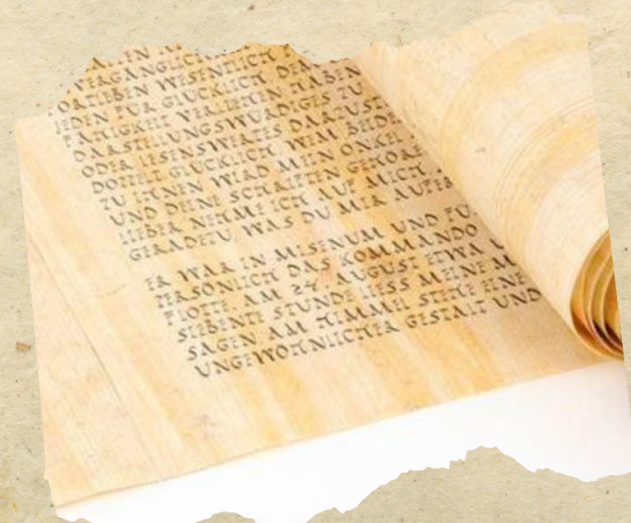 VERGÄNGLICH
FORTLEBEN WESENTLICH
JEDEN FÜR GLÜCKLICH DEN
FÄHIGKEIT VERLIEHEN HABEN
DARSTELLUNGSWÜRDIGES ZU
ODER LESENSWERTES DARZUST
DOPPELT GLÜCKLICH WEM BEIDE
ZU IHNEN WIRD MEIN ONKEL
UND DEINE SCHRIFTEN GEHÖRE
LIEBER NEHME ICH AUF MICH
GERADEZU WAS DU MIR AUFER
ER WAR IN MISENUM UND FÜ
PERSÖNLICH DAS KOMMANDO
FLOTTE AM 24. AUGUST ETWA U
SIEBENTE STUNDE LIESS MEINE M
SAGEN AM HIMMEL STEHE EINE
UNGEWÖHNLICHER GESTALT UND